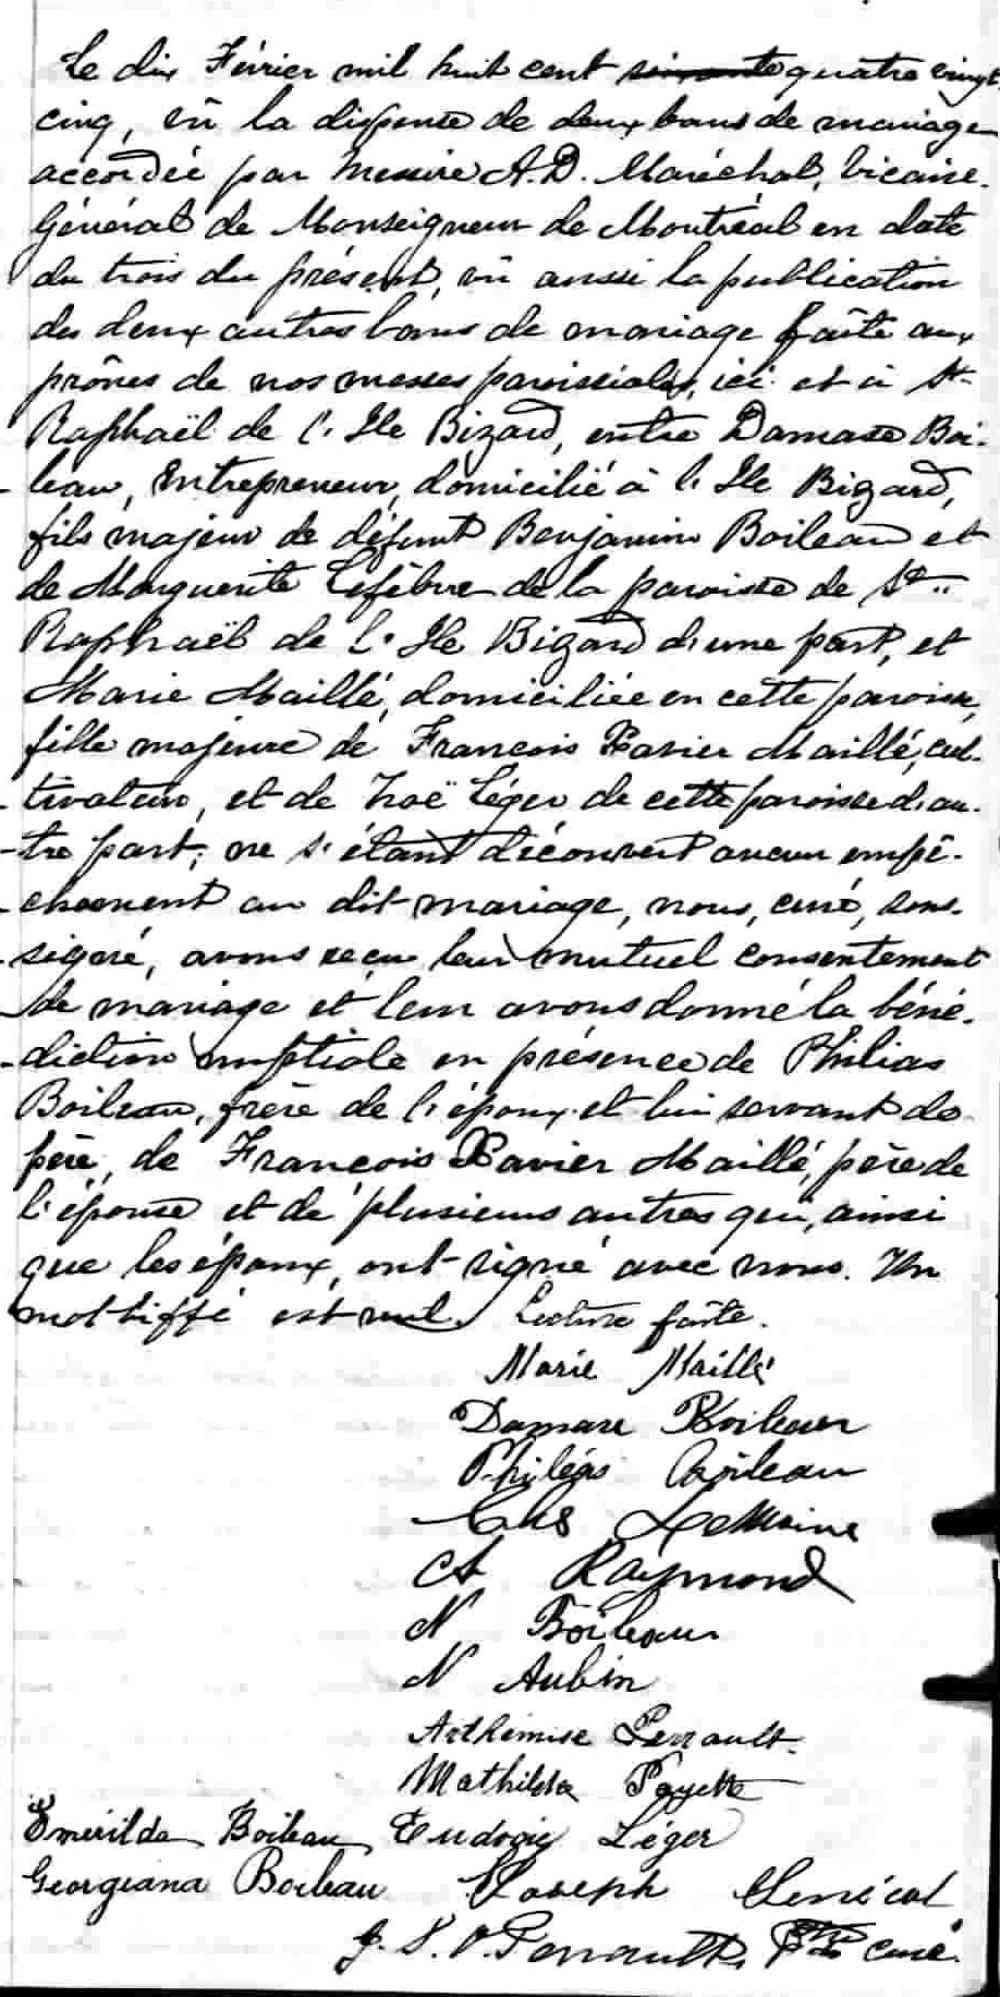 Le dix Février mil huit cent soixante quatre vingt
cinq, vû la dispense de deux bans de mariage
accordée par Messire A.D. Maréchal, Vicaire-
Général de Monseigneur de Montréal en date
du trois du présent, vû aussi la publication
des deux autres bans de mariage faîte aux
prônes de nos messes paroissiales, ici et à St-
Raphaël de l'Ile Bizard, entre Damase Boi-
leau, Entrepreneur, domicilié à l'Ile Bizard,
fils majeur de défunt Benjamin Boileau et
de Marguerite Lefebvre de la paroisse de St-
Raphaël de l'Ile Bizard d'une part, et
Marie Maillé, domiciliée en cette paroisse,
fille majeure de François Xavier Maillé, cul-
tivateur, et de Zoë Léger de cette paroisse d'au-
-tre part; ne s'étant découvert aucun empê-
-chement au dit mariage, nous, curé, sous-
-signé, avons reçu leur mutuel consentement
de mariage et leur avons donné la béné-
-diction nuptiale en présence de Philias
Boileau, frère de l'époux et lui servant de
père, de François Xavier Maillé, père de
l'épouse et de plusieurs autres qui, ainsi
que les époux, ont signé avec nous. Un
mot biffé est nul. Lecture faîte.
Marie Maillé
Damase Boileau
Philéas Boileau
Chs Lemoine
A Raymond
N Boileau
N Aubin
Arthémise Perrault
Mathilda Payette
Emérilda Boileau Eudoxie Léger
Georgiana Boileau Joseph Sénécal
J. S. O. Perrault, Ptre curé.